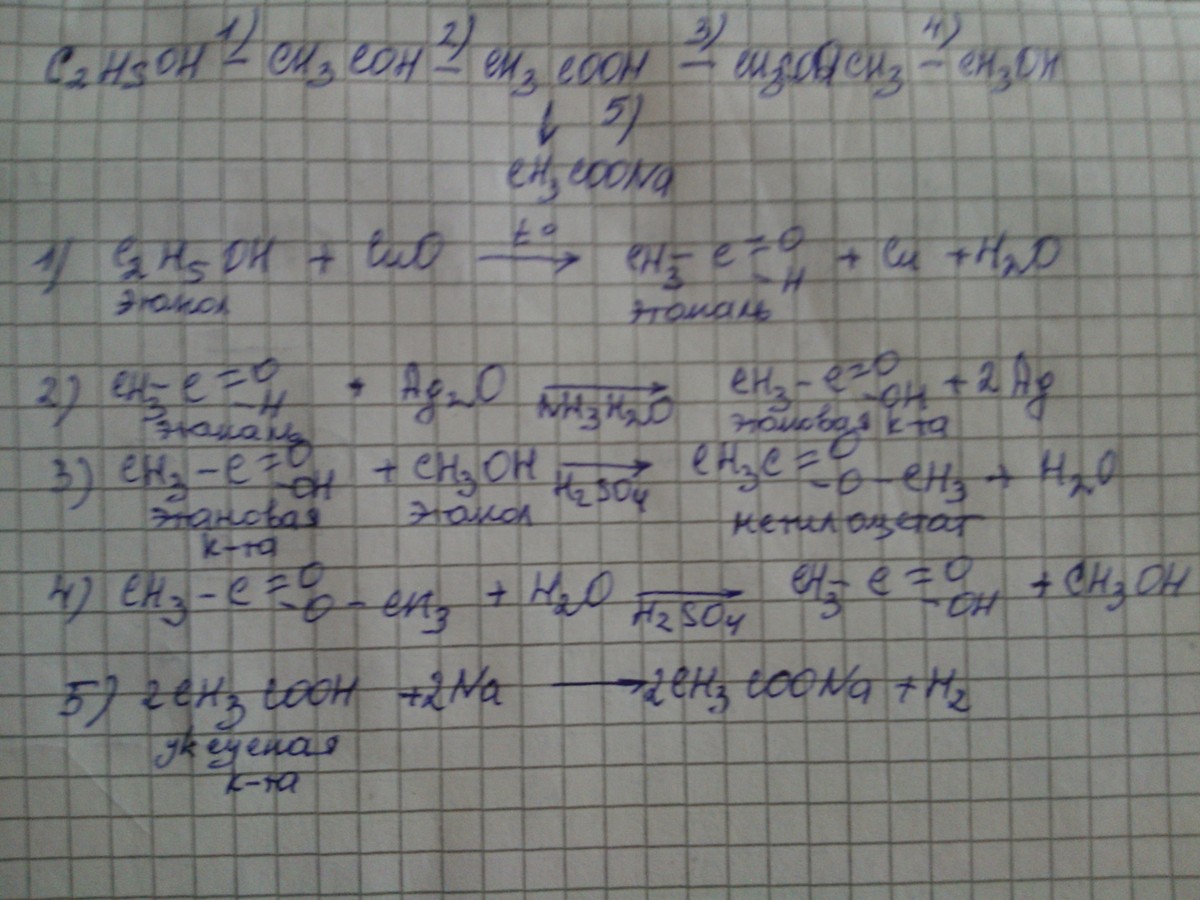 1) 2) 3) 4)
C₂H₅OH – CH₃ COH – CH₃ COOH – – CH₃OH
↓ 5)
CH₃COONa
1) C₂H₅OH + CuO t° → CH₃ – C =O –H + Cu + H₂O
этанол этаналь
2) CH₃ – C =O –H + Ag₂O → NH₃H₂O CH₃ – C =O –OH + 2Ag
этаналь этановая к-та
3) CH₃ – C =O –OH + CH₃OH → H₂SO₄ CH₃C =O –O – CH₃ + H₂O
этановая этанол метилацетат
к-та
4) CH₃ – C =O –O – CH₃ + H₂O → H₂SO₄ CH₃ – C =O –OH + CH₃OH
5) 2CH₃ COOH + 2Na → 2CH₃ COONa + H₂
уксусная
к-та